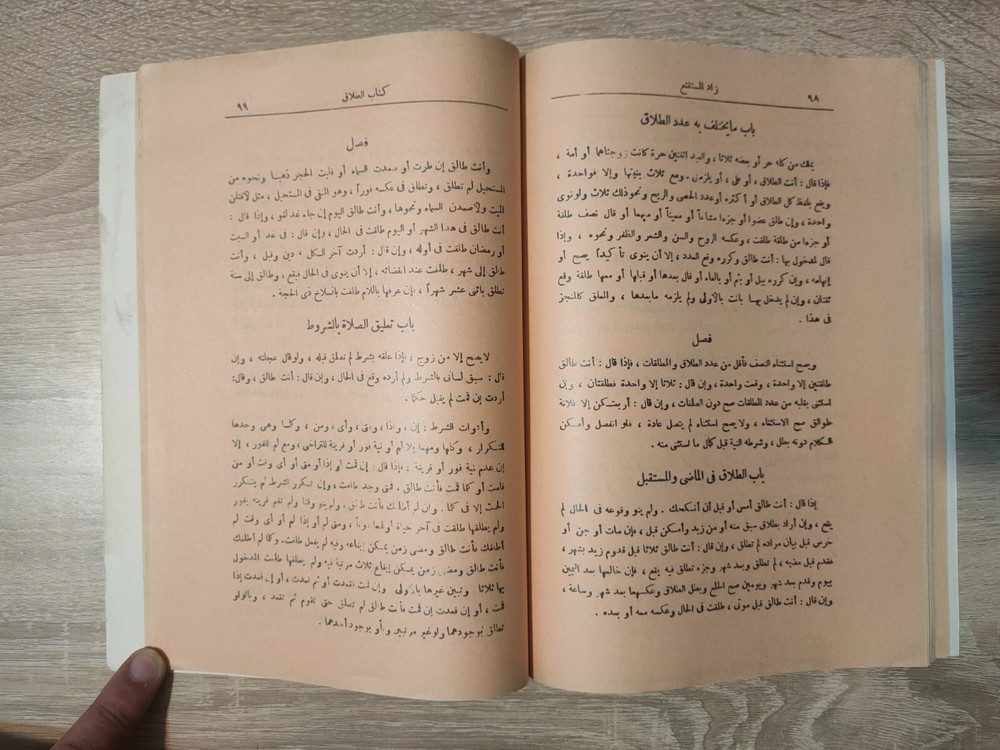 زاد المستقنع
٩٨
باب ما يختلف به عدد الطلاق
يملك من كله حر أو بعضه ثلاثا ، والعبد اثنتين حرة كانت زوجتاهما أو أمة ،
فإذا قال : أنت الطلاق ، أو على ، أو يلزمنى . وقع ثلاث بنيتها وإلا فواحدة ،
ويقع بلفظ كل الطلاق أو أكثره أو عدد الحصى والريح ونحو ذلك ثلاث ولو نوى
واحدة ، وإن طلق عضوا أو جزءا مشاعاً أو معيناً أو مبهما أو قال نصف طلقة
أو جزءا من طلقة طلقت ، وعكسه الروح والسن والشعر والظفر ونحوه ، وإذا
قال لمدخول بها : أنت طالق وكرره وقع العدد ، إلا أن ينوى تأكيداً يصح أو
إفهامه ، وإن كرره ببل أو بثم أو بالفاء أو قال بعدها أو قبلها أو معها طلقة وقع
ثنتان ، وإن لم يدخل بها بانت بالأولى ولم يلزمه ما بعدها ، والمعلق كالمنجز
فى هذا .
فصل
ويصح استثناء النصف فأقل من عدد الطلاق والمطلقات ، فإذا قال : أنت طالق
طلقتين إلا واحدة ، وقعت واحدة ، وإن قال : ثلاثا إلا واحدة فطلقتان ، وإن
استثنى بقلبه من عدد المطلقات صح دون الطلقات ، وإن قال : أربعتكن إلا فلانة
طوالق صح الاستثناء ، ولا يصح استثناء لم يتصل عادة ، فلو انفصل وأمكن
الكلام دونه بطل ، وشرطه النية قبل كمال ما استثنى منه .
باب الطلاق فى الماضى والمستقبل
إذا قال : أنت طالق أمس أو قبل أن أنكحك . ولم ينو وقوعه فى الحال لم
يقع ، وإن أراد بطلاق سبق منه أو من زيد وأمكن قبل ، فإن مات أو جن أو
خرس قبل بيان مراده لم تطلق ، وإن قال : أنت طالق ثلاثا قبل قدوم زيد بشهر ،
فقدم قبل مضيه ، لم تطلق وبعد شهر وجزء تطلق فيه يقع ، فإن خالعها بعد اليمين
بيوم وقدم بعد شهر ويومين صح الخلع وبطل الطلاق وعكسهما بعد شهر وساعة ،
وإن قال : أنت طالق قبل موتى ، طلقت فى الحال وعكسه معه أو بعده .
كتاب الطلاق
٩٩
فصل
وأنت طالق إن طرت أو صعدت السماء أو قلبت الحجر ذهبا ونحوه من
المستحيل لم تطلق ، وتطلق فى عكسه فوراً ، وهو النفى فى المستحيل ، مثل لاقتلن
الميت ولاصعدن السماء ونحوها ، وأنت طالق اليوم إن جاء غد لغو ، وإذا قال :
أنت طالق فى هذا الشهر أو اليوم طلقت فى الحال ، وإن قال : فى غد أو السبت
أو رمضان طلقت فى أوله ، وإن قال : أردت آخر الكل دين وقبل ، وأنت
طالق إلى شهر ، طلقت عند انقضائه ، إلا أن ينوى فى الحال فيقع ، وطالق إلى سنة
تطلق باثنى عشر شهراً ، فإن عرفها باللام طلقت بانسلاخ ذى الحجة .
باب تعليق الصلاة بالشروط
لا يصح إلا من زوج ، فإذا علقه بشرط لم تطلق قبله ، ولو قال عجلته ، وإن
قال : سبق لسانى بالشرط ولم أرده وقع فى الحال ، وإن قال : أنت طالق ، وقال:
أردت إن قمت لم يقبل حكما .
وأدوات الشرط : إن ، وإذا ، ومتى ، وأى ، ومن ، وكلما وهى وحدها
للتكرار ، وكلها ومهما بلا لم أو نية فور أو قرينة للتراخى ، ومع لم للفور ، إلا
إن عدم نية فور أو قرينة : فإذا قال : إن قمت أو إذا أو متى أو أى وقت أو من
قامت أو كلما قمت فأنت طالق ، فمتى وجد طلقت ، وإن تكرر الشرط لم يتكرر
الحنث إلا فى كلما . وإن لم أطلقك فأنت طالق . ولم ينو وقتا ولم تقم قرينة بفور
ولم يطلقها طلقت فى آخر حياة أولهما موتاً ، ومتى لم أو إذا لم أو أى وقت لم
أطلقك فأنت طالق ومضى زمن يمكن إيقاعه فيه ولم يفعل طلقت. وكلما لم أطلقك
فأنت طالق ومضى زمن يمكن إيقاع ثلاث مرتبة فيه ولم يطلقها طلقت المدخول
بها ثلاثا وتبين غيرها بالأولى وإن قمت فقعدت أو ثم قعدت ، أو إن قعدت إذا
قمت ، أو إن قعدت إن قمت فأنت طالق لم تطلق حتى تقوم ثم تقعد ، وبالواو
تطلق بوجودهما ولو غير مرتبين وبأو بوجود أحدهما .